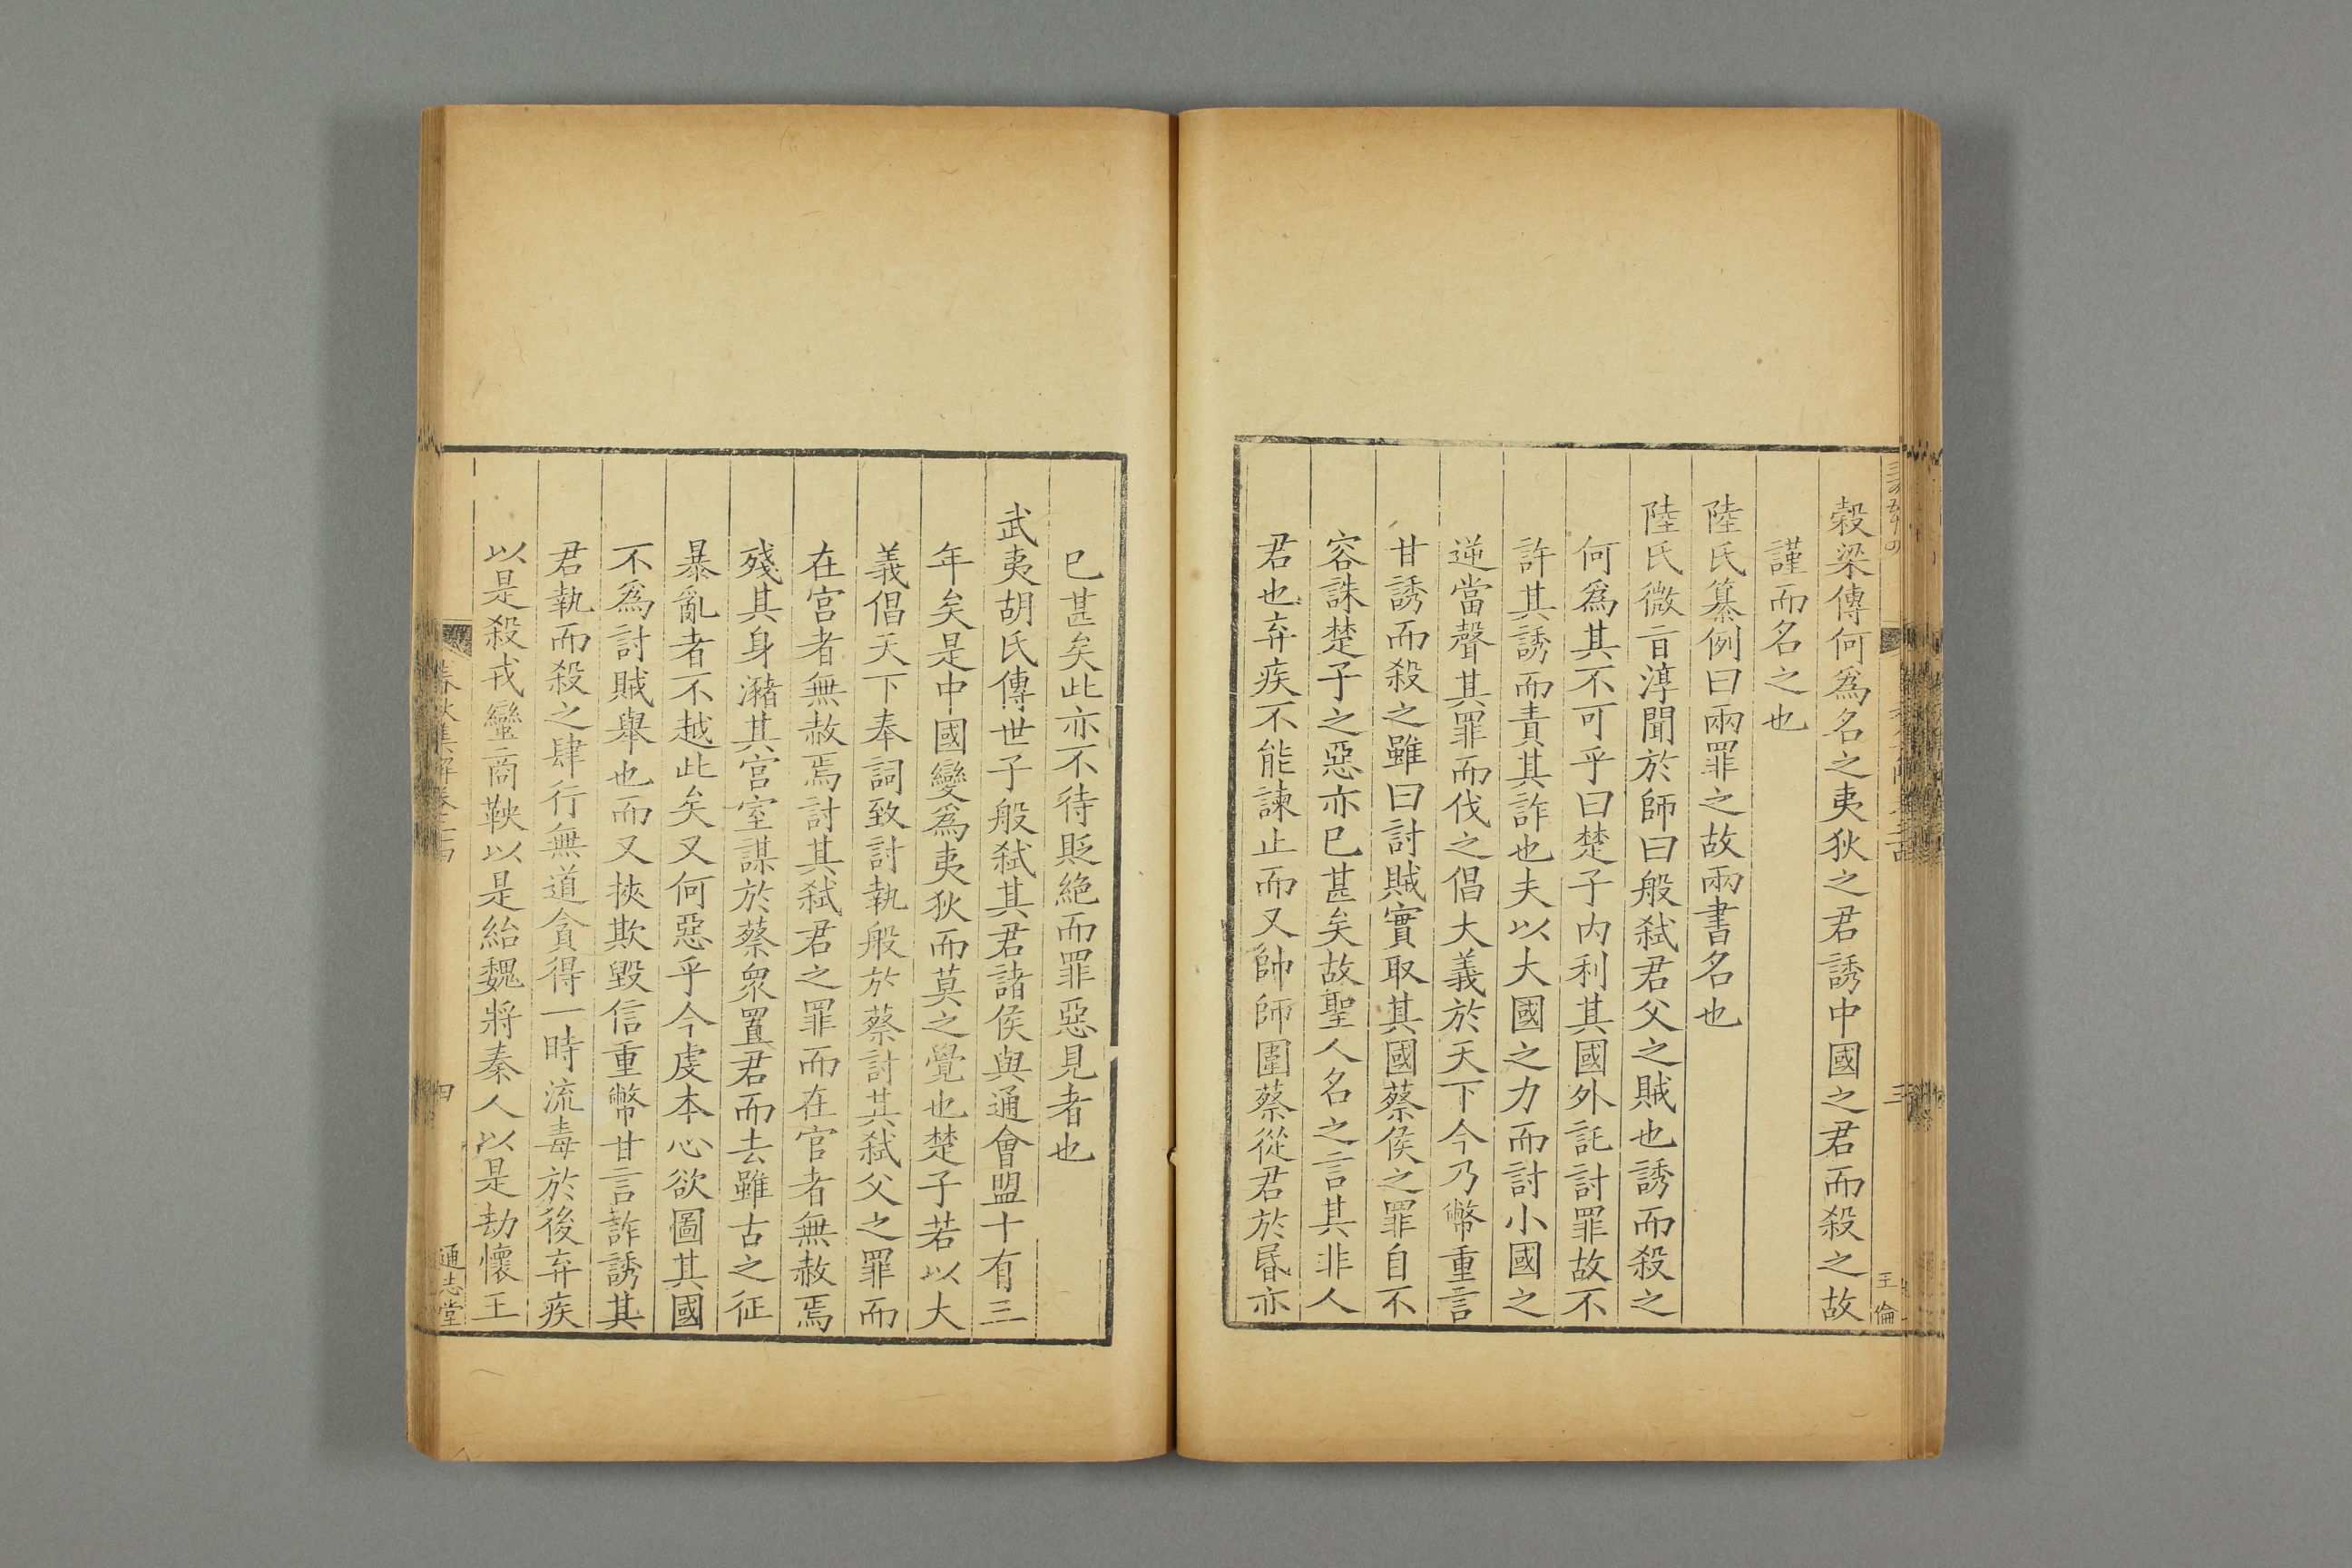 穀梁傳何爲名之夷狄之君誘中國之君而殺之故
謹而名之也
陸氏纂例曰兩罪之故兩書名也
陸氏微㫖淳聞於師曰般弑君父之賊也誘而殺之
何爲其不可乎曰楚子内利其國外託討罪故不
許其誘而責其詐也夫以大國之力而討小國之
逆當聲其罪而伐之倡大義於天下今乃幣重言
甘誘而殺之雖曰討賊實取其國蔡侯之罪自不
容誅楚子之惡亦已甚矣故聖人名之言其非人
君也弃疾不能諫止而又帥師圍蔡從君於昬亦
王倫
三
已甚矣此亦不待貶絶而罪惡見者也
武夷胡氏傳世子般弑其君諸侯與通會盟十有三
年矣是中國變爲夷狄而莫之覺也楚子若以大
義倡天下奉詞致討執般於蔡討其弑父之罪而
在宫者無赦焉討其弑君之罪而在官者無赦焉
殘其身瀦其宫室謀於蔡衆置君而去雖古之征
暴亂者不越此矣又何惡乎今虔本心欲圖其國
不爲討賊舉也而又挾欺毁信重幣甘言詐誘其
君執而殺之肆行無道貪得一時流毒於後弃疾
以是殺戎蠻商鞅以是紿魏將秦人以是劫懷王
春秋集解卷二十四
四
通志堂